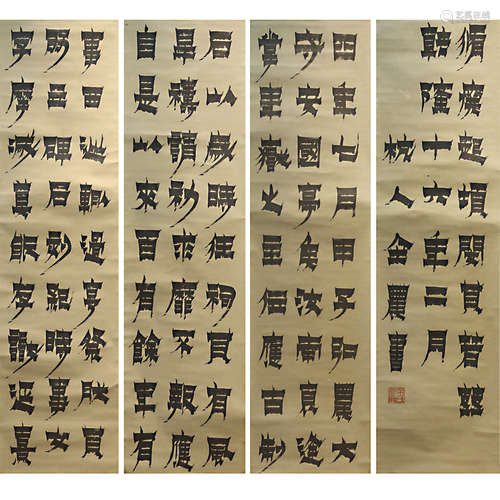 石以歲時往祠其有風
旱禱請祈求靡不報應
自是以來百有餘年有
事西巡輒過亨祭然其
所立碑石刻紀時事文
字摩滅莫能存識延熹
四年七月甲子弘農太
守安國亭侯汝南袁逢
掌華嶽之主位應古制
脩廢起頓閔其若茲
乾隆十六年二月
杭人金農書